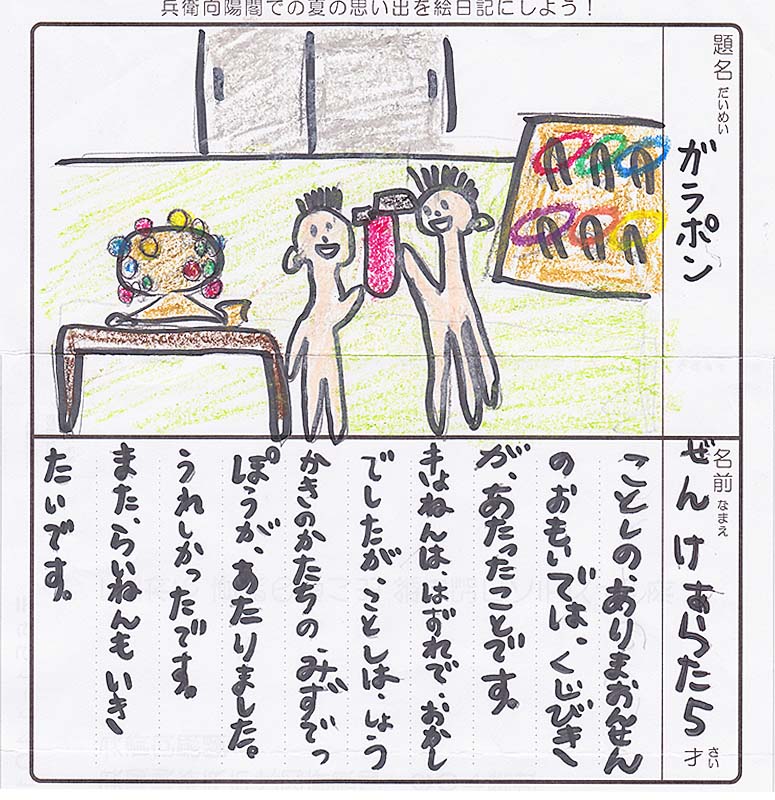 兵衛向陽閣での夏の思い出を絵日記にしよう！
題名 だいめい
ガラポン
名前 なまえ
ぜんけ あらた 5才 さい
ことしの、ありまおんせん
のおもいでは、くじびき
が、あたったことです。
きょねんは、はずれで、おかし
でしたが、ことしは、しょう
かきのかたちの、みずでっ
ぽうが、あたりました。
うれしかったです。
また、らいねんも いき
たいです。